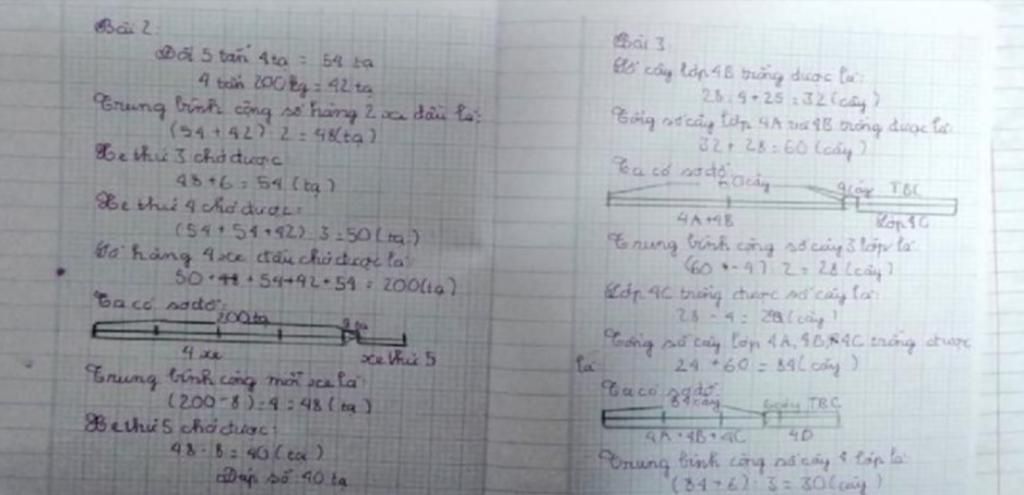 Bài 2:
Đổi 5 tấn 4 tạ = 54 tạ
4 tấn 200kg = 42 tạ
Trung bình cộng số hàng 2 xe đầu là:
(54 + 42) : 2 = 48(tạ)
Xe thứ 3 chở được
48 + 6 = 54 (tạ)
Xe thứ 4 chở được:
(54 + 54 + 42) : 3 = 50 (tạ)
Số hàng 4 xe đầu chở được là:
50 + 54 + 42 + 54 = 200(tạ)
Ta có sơ đồ:
200 tạ
8 tạ
4 xe
xe thứ 5
Trung bình cộng mỗi xe là:
(200 - 8) : 4 = 48 (tạ)
Xe thứ 5 chở được:
48 - 8 = 40 (tạ)
Đáp số 40 tạ
Bài 3:
Số cây lớp 4B trồng được là:
28 + 25 = 32 (cây)
Tổng số cây lớp 4A và 4B trồng được là:
32 + 28 = 60 (cây)
Ta có sơ đồ:
60 cây
4 cây TBC
4A + 4B
Lớp 4C
Trung bình cộng số cây 3 lớp là:
(60 - 4) : 2 = 28 (cây)
Lớp 4C trồng được số cây là:
28 - 4 = 24 (cây)
Tổng số cây lớp 4A, 4B, 4C trồng được
là:
24 + 60 = 84 (cây)
Ta có sơ đồ:
84 cây
6 cây TBC
4A + 4B + 4C
4D
Trung bình cộng số cây 4 lớp là:
(84 + 6) : 3 = 30 (cây)